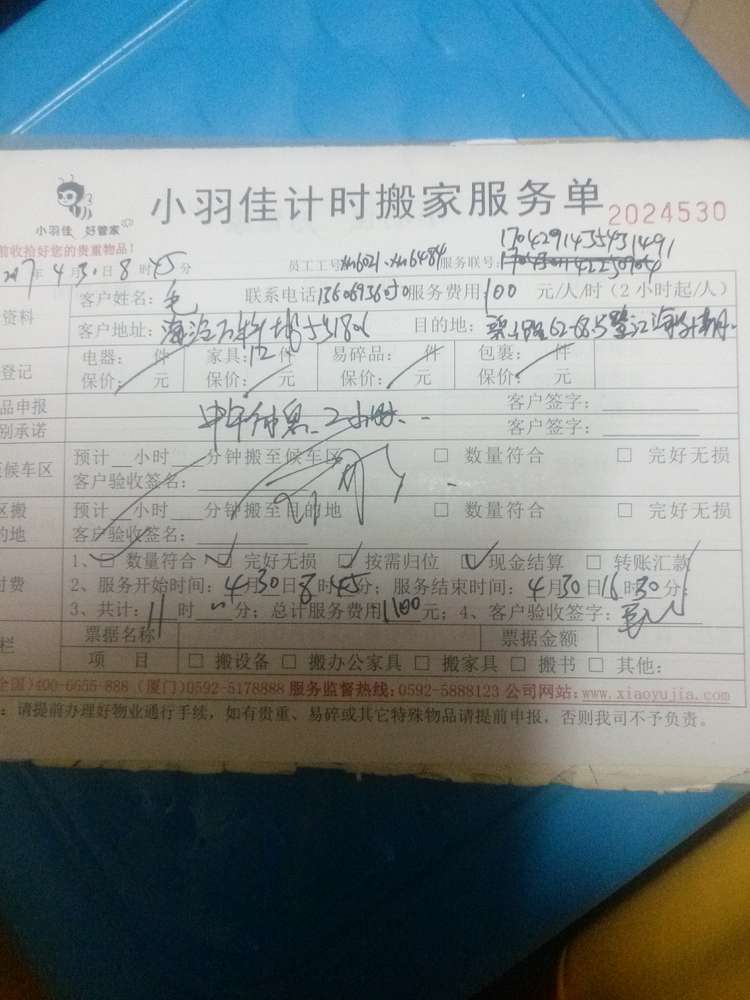 小羽佳计时搬家服务单
2024530
小羽佳 好管家
前收拾好您的贵重物品!
2017年4月30日8时45分 员工工号xm6021、xm6484 服务联号:
17042914354931491
资料 客户姓名:毛 联系电话 服务费用:100元/人/时(2小时起/人)
客户地址: 目的地:
登记 电器: 件 家具:12件 易碎品: 件 包裹: 件
保价: 元 保价: 元 保价: 元 保价: 元
品申报 客户签字:
别承诺 中午休息 2小时 客户签字:
候车区 预计 小时 分钟搬至候车区 □ 数量符合 □ 完好无损
客户验收签名:
区搬 预计 小时 分钟搬至目的地 □ 数量符合 □ 完好无损
的地 客户验收签名:
1、□ 数量符合 ☑ 完好无损 ☑ 按需归位 ☑ 现金结算 □ 转账汇款
付费 2、服务开始时间:4月30日8时45分; 服务结束时间:4月30日16时30分;
3、共计:11时 分; 总计服务费用1100元; 4、客户验收签字:
栏 票据名称 票据金额
项 目 □ 搬设备 □ 搬办公家具 □ 搬家具 □ 搬书 □ 其他:
全国)400-6655-888 (厦门)0592-5178888 服务监督热线:0592-5888123 公司网站:www.xiaoyujia.com
:请提前办理好物业通行手续,如有贵重、易碎或其它特殊物品请提前申报,否则我司不予负责。